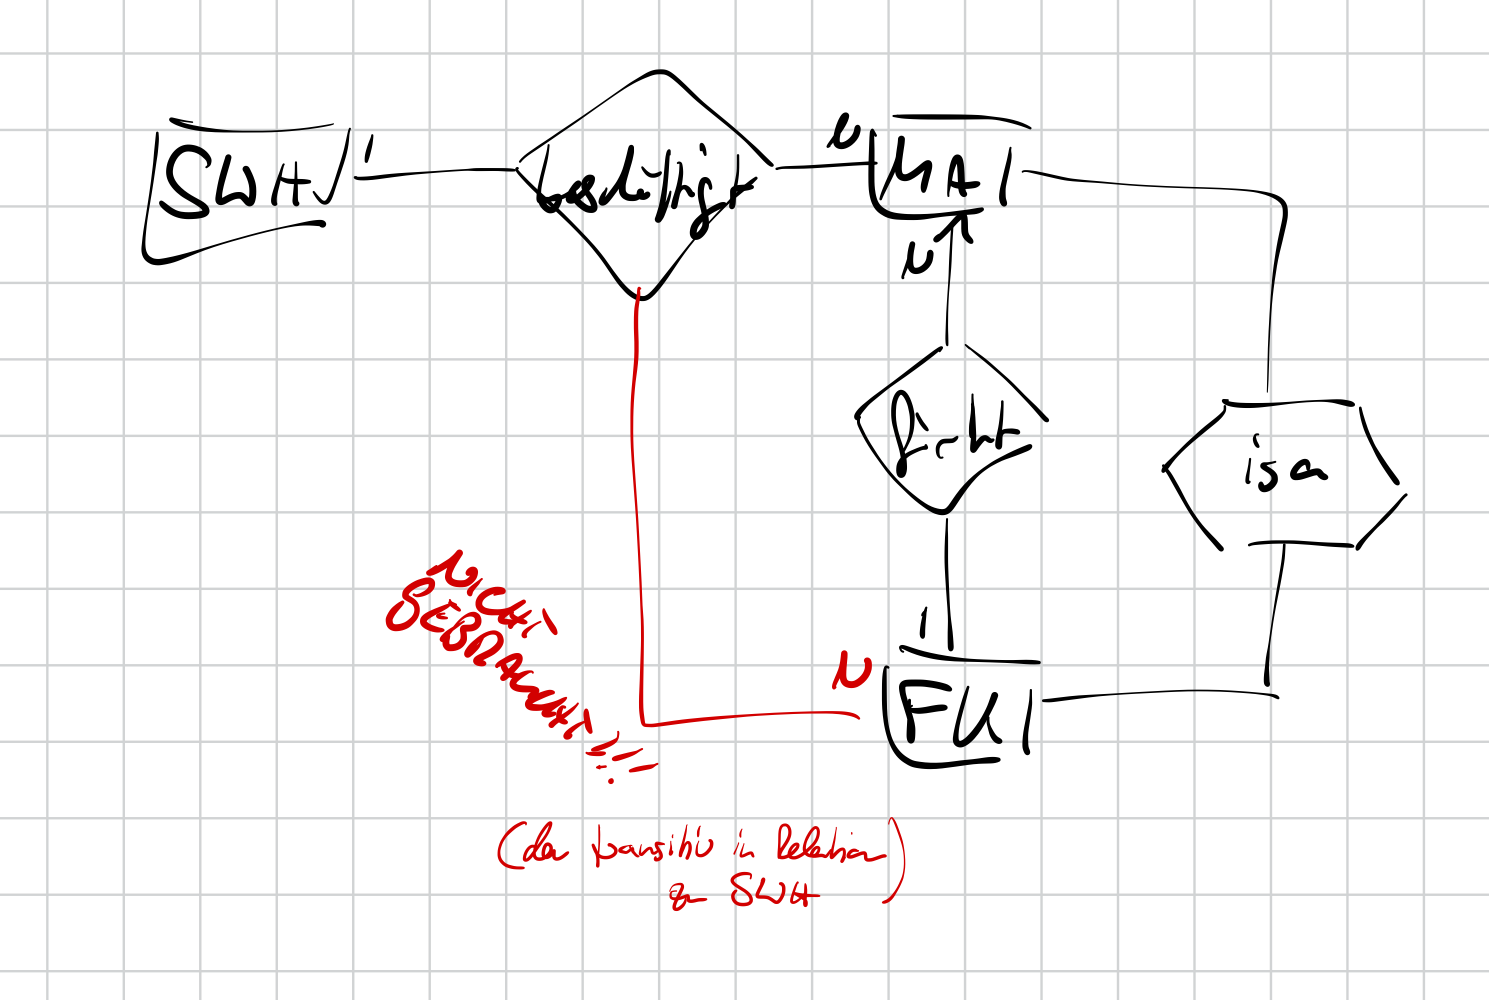 SWH
1
beschäftigt
N
MA
N
führt
isa
1
FK
N
NICHT
GEBRAUCHT!!!
(da transitiv in Relation
zu SWH)